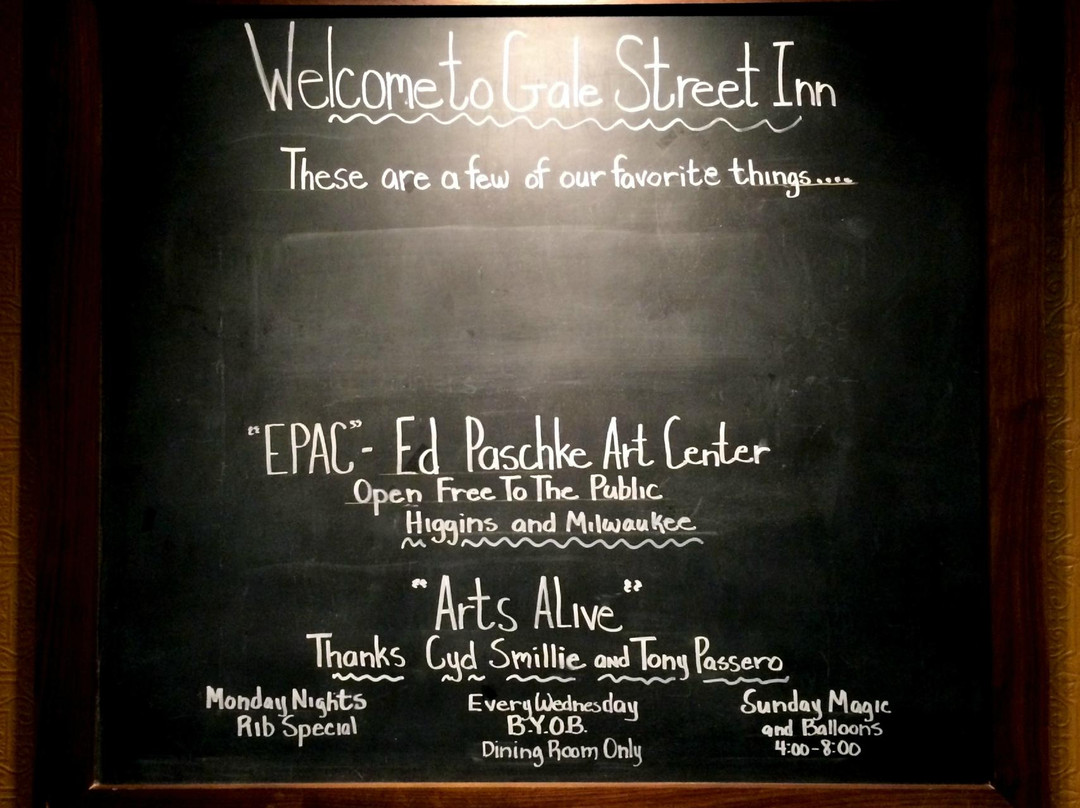 Welcome to Gale Street Inn
These are a few of our favorite things....
"EPAC"- Ed Paschke Art Center
Open Free To The Public
Higgins and Milwaukee
"Arts Alive"
Thanks Cyd Smillie and Tony Passero
Monday Nights
Rib Special
Every Wednesday
B.Y.O.B.
Dining Room Only
Sunday Magic
and Balloons
4:00-8:00